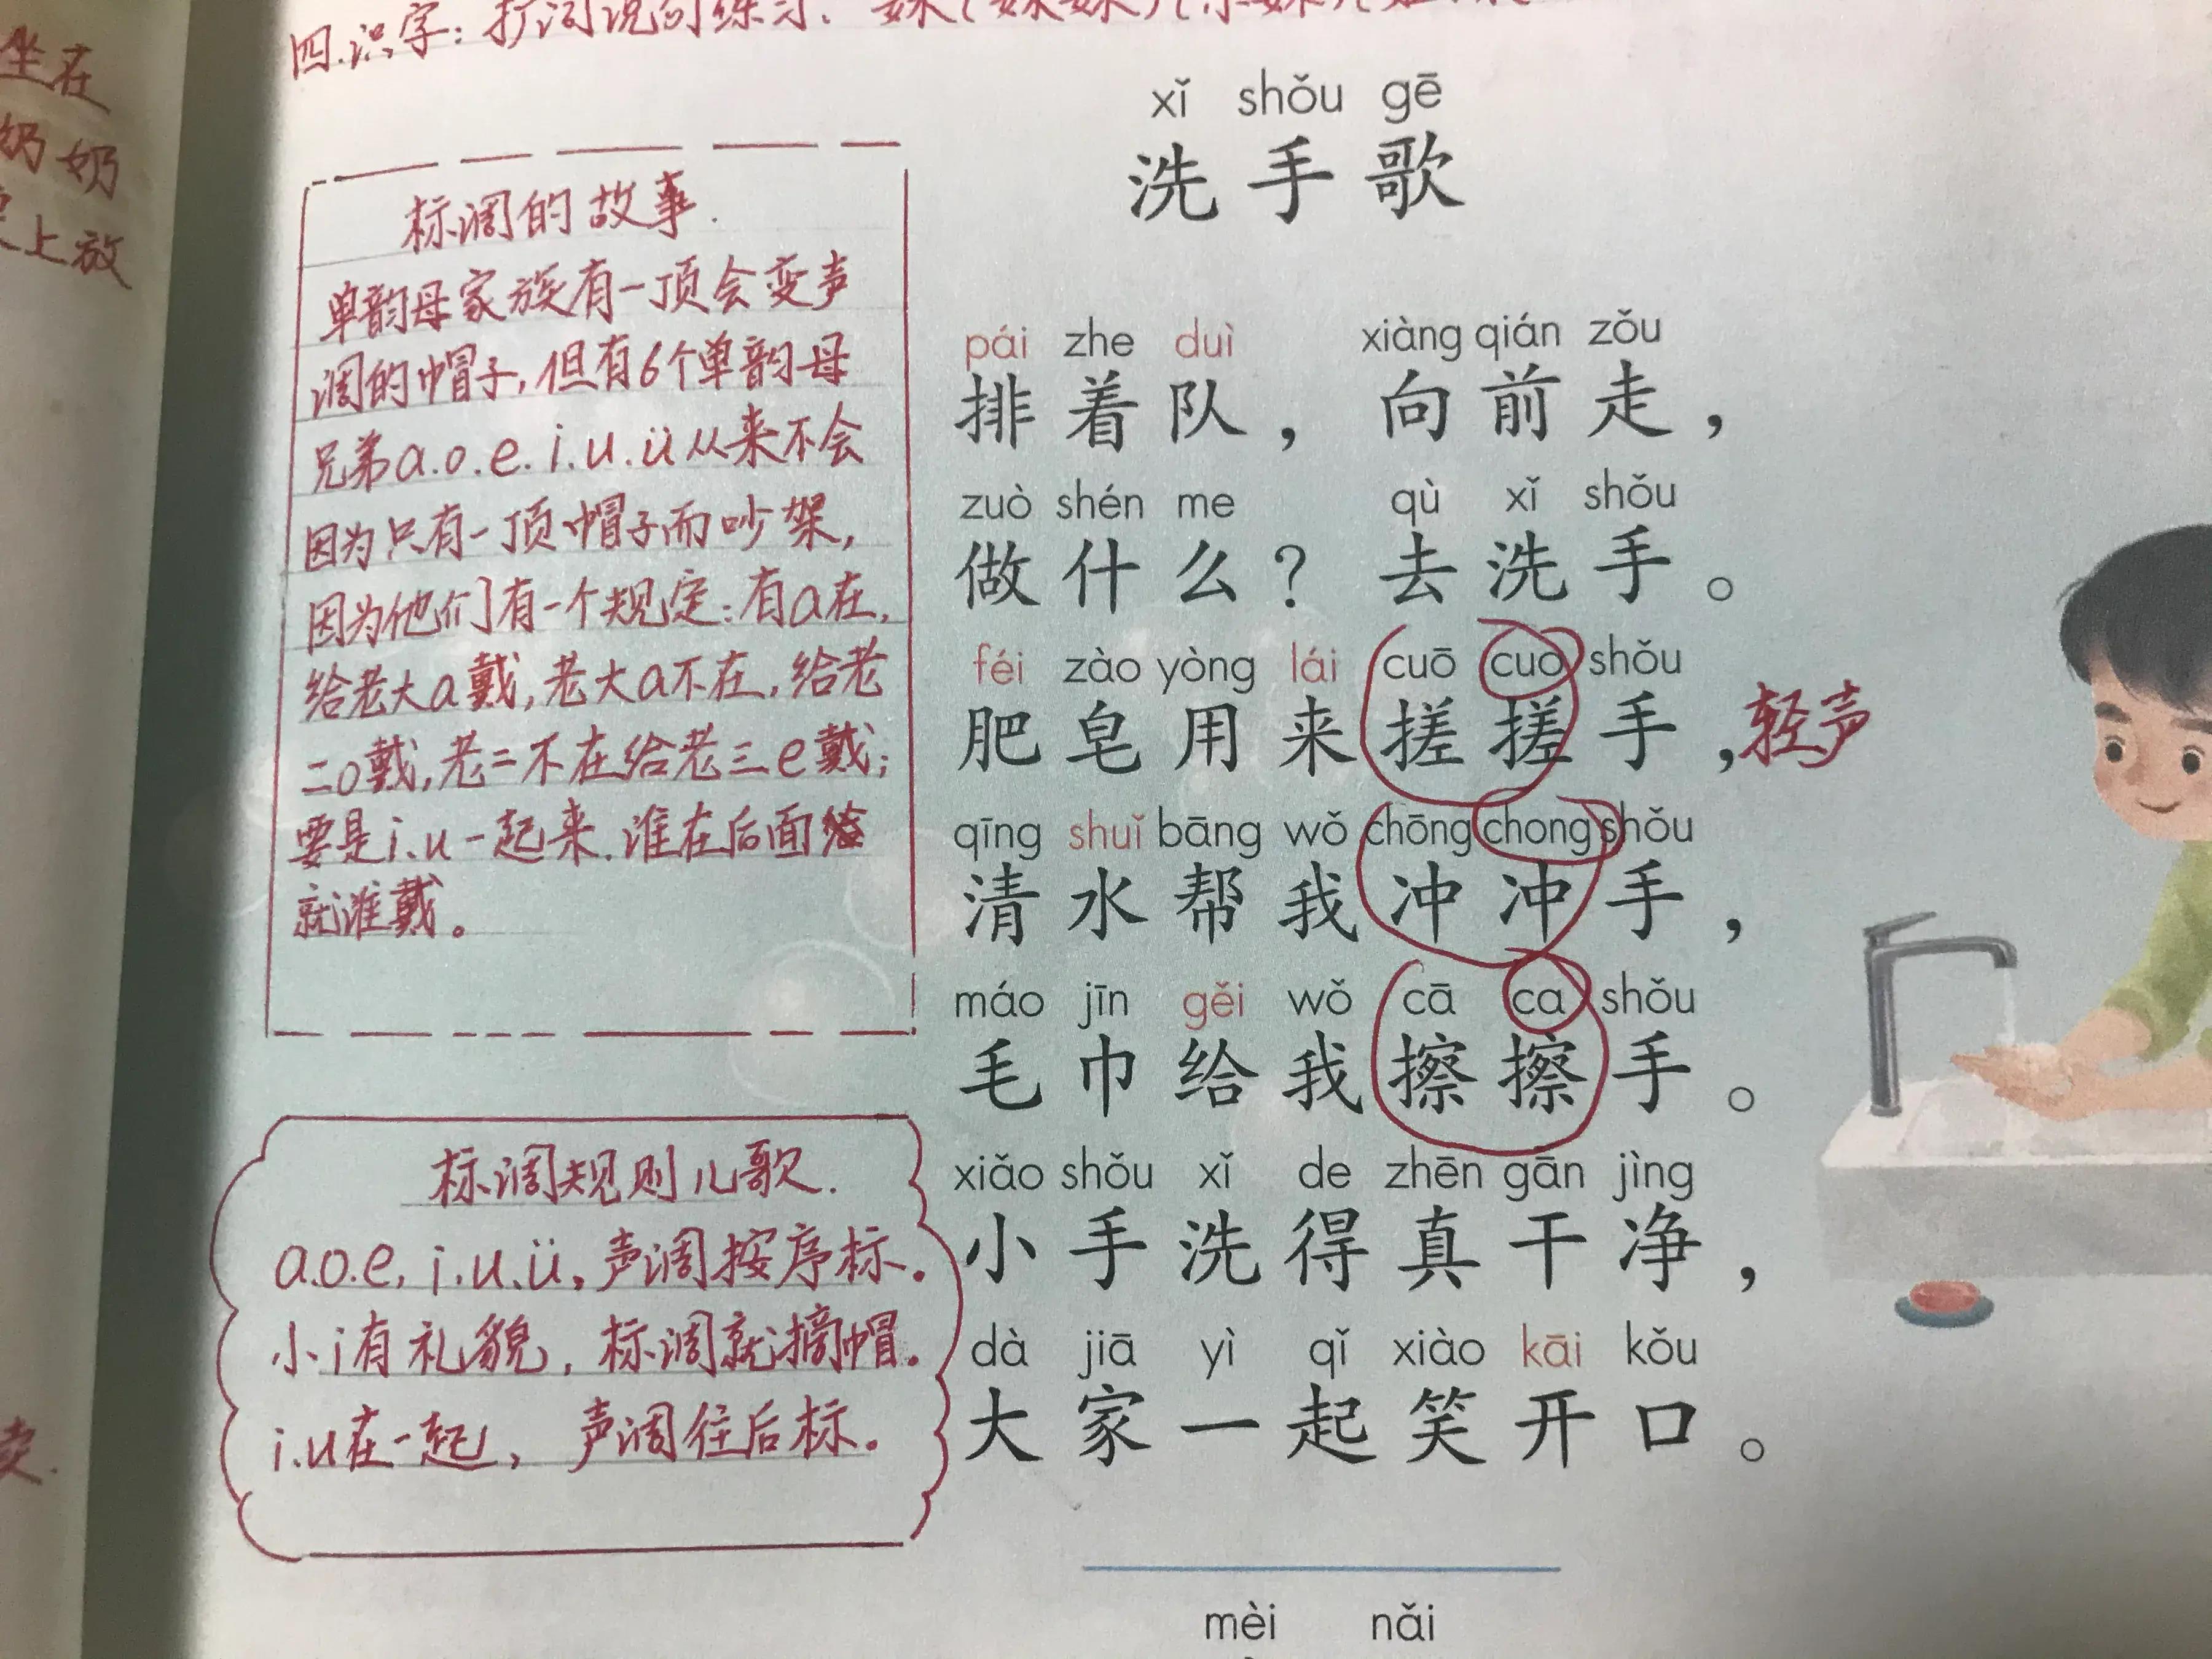 坐在
奶奶
上放
四.识字:打词说句练习.
标调的故事.
单韵母家族有一顶会变声
调的帽子,但有6个单韵母
兄弟a.o.e.i.u.ü从来不会
因为只有一顶帽子而吵架,
因为他们有一个规定:有a在,
给老大a戴,老大a不在,给老
二o戴,老二不在给老三e戴;
要是i.u一起来.谁在后面
就谁戴。
标调规则儿歌.
a.o.e.i.u.ü,声调按序标。
小i有礼貌,标调就摘帽。
i.u在一起,声调往后标。
xǐ shǒu gē
洗手歌
pái zhe duì xiàng qián zǒu
排着队，向前走，
zuò shén me qù xǐ shǒu
做什么？去洗手。
féi zào yòng lái cuō cuo shǒu
肥皂用来搓搓手，轻声
qīng shuǐ bāng wǒ chōng chong shǒu
清水帮我冲冲手，
máo jīn gěi wǒ cā ca shǒu
毛巾给我擦擦手。
xiǎo shǒu xǐ de zhēn gān jìng
小手洗得真干净，
dà jiā yì qǐ xiào kāi kǒu
大家一起笑开口。
mèi nǎi